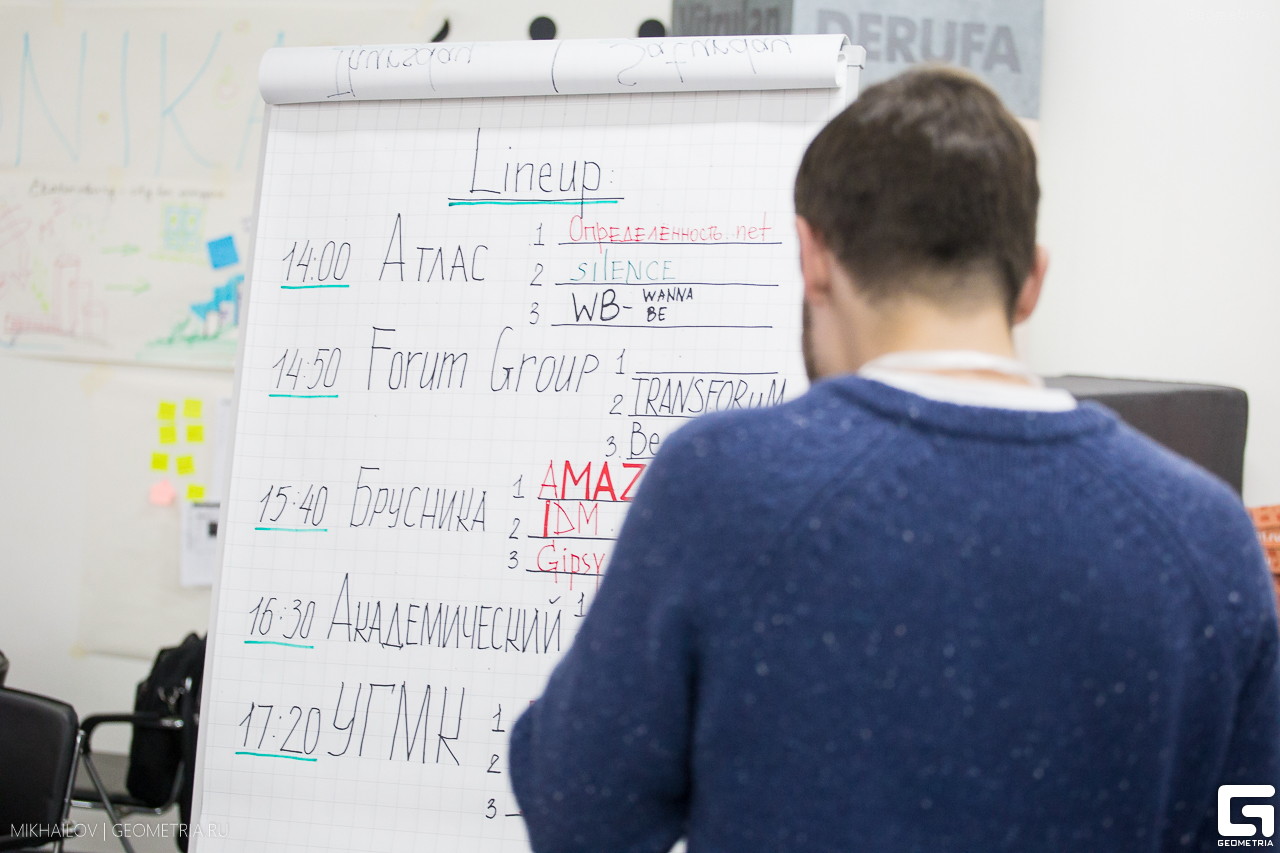 NIKA
Vitrulan
DERUFA
Thursday | Saturday
Lineup:
14:00 Атлас
1 Определённость.net
2 SILENCE
3 WB- WANNA BE
14:50 Forum Group
1
2 TRANSFORUM
3. Be
15:40 Брусника
1 AMAZ
2 IDM
3 Gipsy
16:30 Академический 1
17:20 УГМК
1
2
3
MIKHAILOV | GEOMETRIA.RU
GEOMETRIA